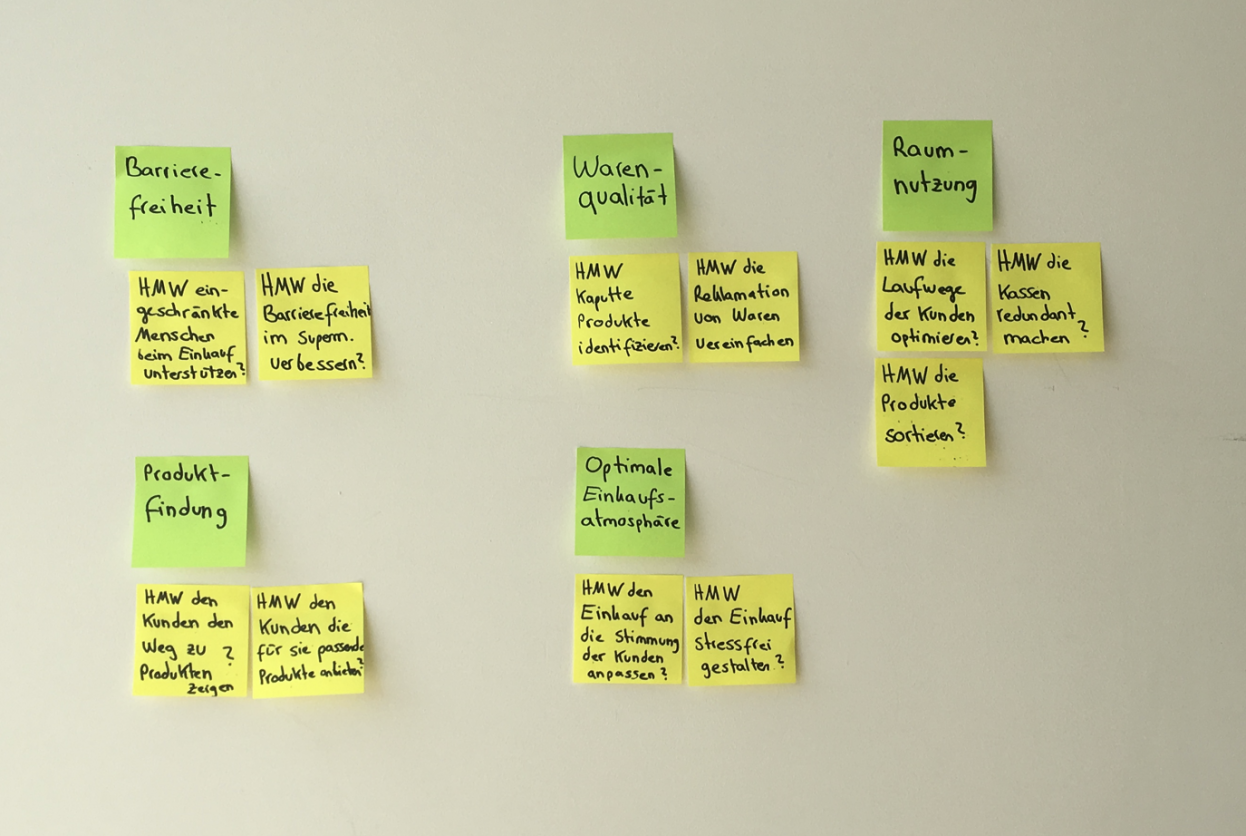 Barriere-
freiheit
HMW ein-
geschränkte
Menschen
beim Einkauf
unterstützen?
HMW die
Barrierefreiheit
im Superm.
verbessern?
Waren-
qualität
HMW
kaputte
Produkte
identifizieren?
HMW die
Reklamation
von Waren
vereinfachen
Raum-
nutzung
HMW die
Laufwege
der Kunden
optimieren?
HMW die
Kassen
redundant
machen?
HMW die
Produkte
sortieren?
Produkt-
findung
HMW den
Kunden den
Weg zu
Produkten
zeigen?
HMW den
Kunden die
für sie passende
Produkte anbieten?
Optimale
Einkaufs-
atmosphäre
HMW den
Einkauf an
die Stimmung
der Kunden
anpassen?
HMW
den Einkauf
stressfrei
gestalten?